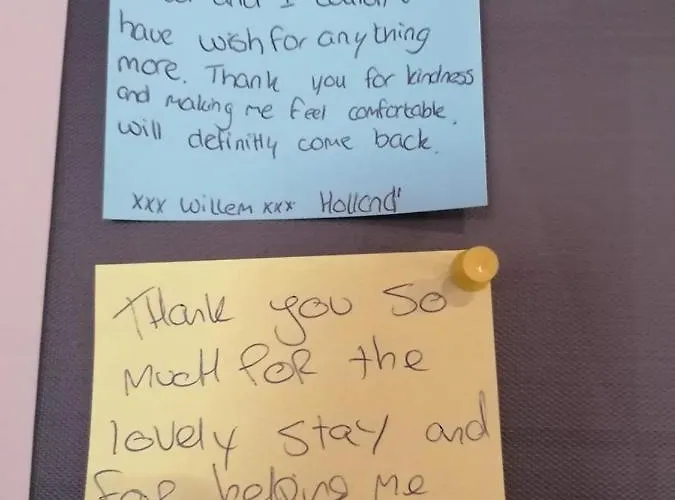 and I couldn't
have wish for anything
more. Thank you for kindness
and making me feel comfortable.
will definitly come back.
xxx Willem xxx Holland'
Thank you so
Much for the
lovely stay and
for helping me